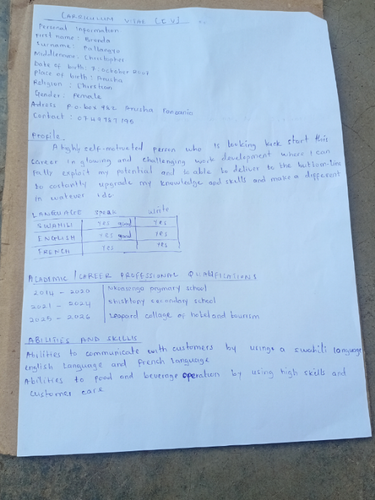 CARRICULUM VITAE (C.V)
Personal Information
First name : Brenda
Surname :
Middlename : Christopher
Date of birth : October
Place of birth : Arusha
Religion : Christian
Gender : Female
Adress P.O.box 762 Arusha Tanzania
Contact :
Profile
A highly self-motivated person who is looking start this
career in glowing and challenging work development where I can
fully exploit my potential and is able to deliver to the bottom-line
to costantly upgrade my knowledge and skills and make a different
in watever I do
LANGUAGE write
SWAHILI YES good YES
ENGLISH YES good YES
FRENCH YES YES
ACADEMIC / CAREER PROFESSIONAL QUALIFICATIONS
2014 - 2020 primary school
2021 - 2024 secondary school
2025 - 2026 Leopard collage of hotel and tourism
ABILITIES AND SKILLS
Abilities to communicate with customers by using a swahili language
english language and french language
Abilities to food and beverage operation by using high skills and
customer care